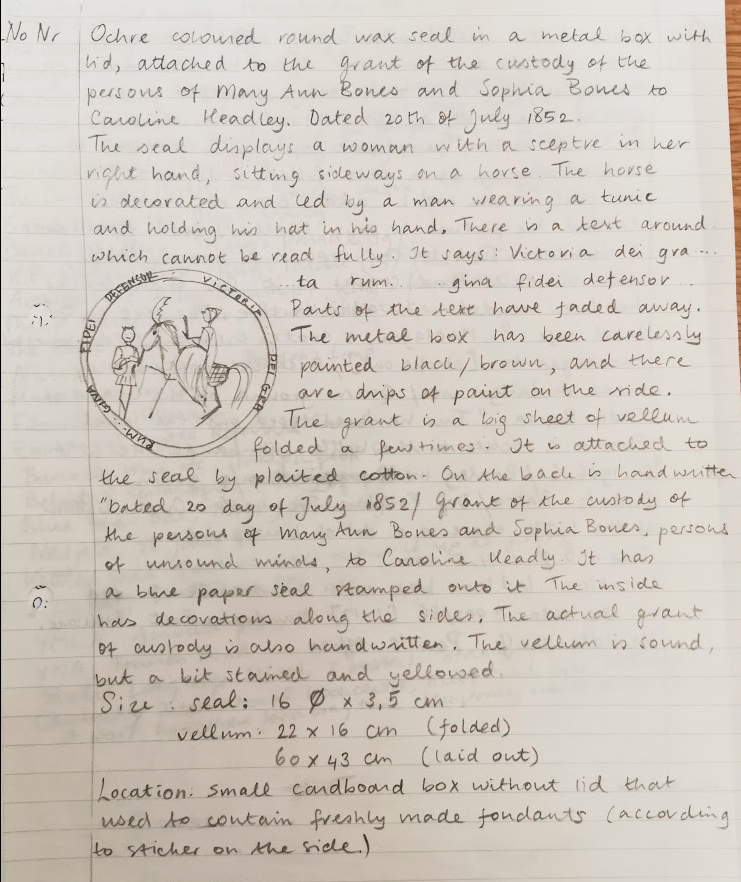 No Nr
Ochre coloured round wax seal in a metal box with
lid, attached to the grant of the custody of the
persons of Mary Ann Bones and Sophia Bones to
Caroline Headley. Dated 20th of July 1852.
The seal displays a woman with a sceptre in her
right hand, sitting sideways on a horse. The horse
is decorated and led by a man wearing a tunic
and holding his hat in his hand. There is a text around
which cannot be read fully. It says: Victoria dei gra...
...ta rum... gina fidei defensor..
Parts of the text have faded away.
The metal box has been carelessly
painted black/brown, and there
are drips of paint on the side.
The grant is a big sheet of vellum
folded a few times. It is attached to
the seal by plaited cotton. On the back is handwritten
"Dated 20 day of July 1852/ Grant of the custody of
the persons of Mary Ann Bones and Sophia Bones, persons
of unsound minds, to Caroline Headly. It has
a blue paper seal stamped onto it The inside
has decorations along the sides. The actual grant
of custody is also handwritten. The vellum is sound,
but a bit stained and yellowed.
Size: seal: 16 Ø x 3,5 cm
vellum: 22 x 16 cm (folded)
60 x 43 cm (laid out)
Location: small cardboard box without lid that
used to contain freshly made fondants (according
to sticker on the side.)
RUM... GINA FIDEI DEFENSOR... VICTORIA DEI GRA